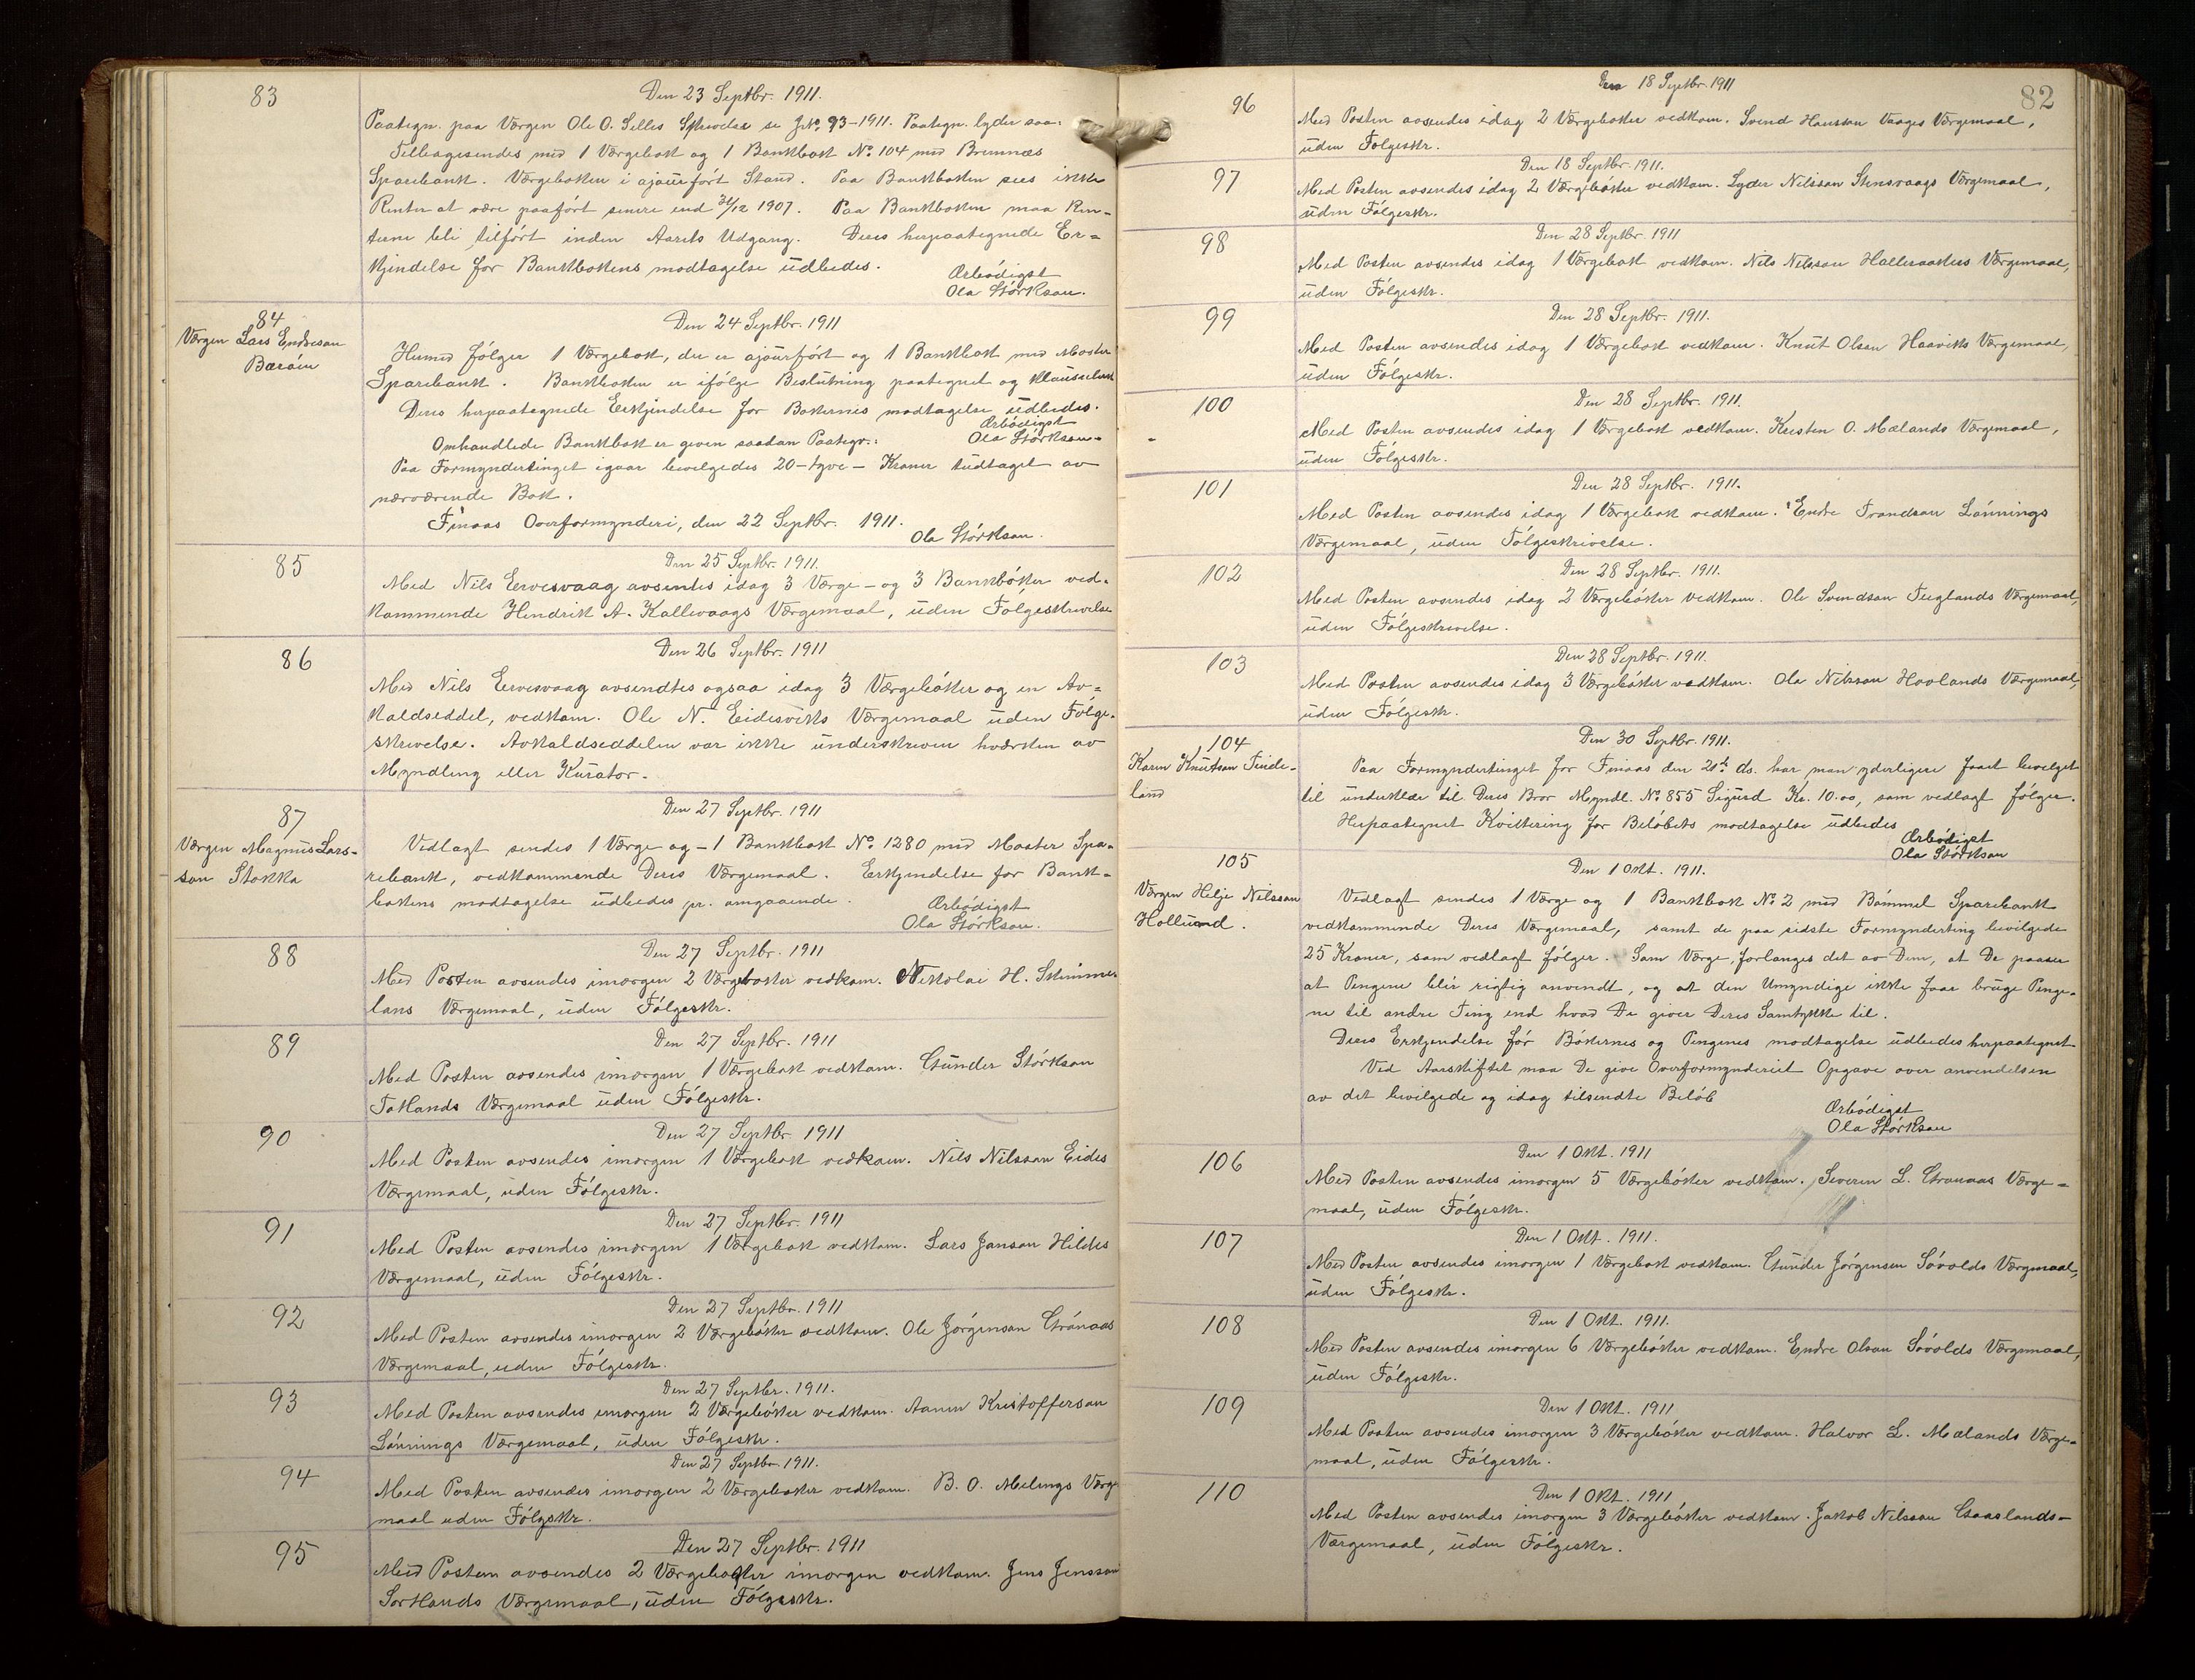 83
Den 23 Septbr. 1911.
Paategn. paa Værgen Ole O. Selles Skrivelse se J.No. 93-1911. Paategn. lyder saa:
Tilbagesendes med 1 Værgebok og 1 Bankbok No. 104 med Bremnæs
Sparebank. Værgeboken i ajourført Stand. Paa Bankboken sees ikke
Renter at være paaført senere end 31/12 1907. Paa Bankboken maa Ren-
terne bli tilført inden Aarets Udgang. Deres herpaategnede Er-
kjendelse for Bankbokens modtagelse udbedes.
Ærbødigst
Ola Størkson.
84
Værgen Lars Endreson
Bærøen
Den 24 Septbr. 1911
Hermed følger 1 Værgebok, der er ajourført og 1 Bankbok med Moster
Sparebank. Bankboken er ifølge Beslutning paategnet og
Deres herpaategnede Erkjendelse for Bøkernes modtagelse udbedes.
Ærbødigst
Ola Størkson.
Omhandlede Bankbok er given saadan Paategn.:
Paa Formyndertinget igaar bevilgedes 20-tyve- Kroner udtaget av
nærværende Bok.
Finaas Overformynderi, den 22 Septbr. 1911.
Ola Størkson.
85
Den 25 Septbr. 1911.
Med Nils Eervesvaag avsendtes idag 3 Værge- og 3 Bankbøker ved-
kommende Hendrik A. Kallevaags Værgemaal, uden Følgeskrivelse
86
Den 26 Septbr. 1911
Med Nils Eervesvaag avsendtes ogsaa idag 3 Værgebøker og en Av-
kaldseddel, vedkom. Ole N. Eidesviks Værgemaal uden Følge-
skrivelse. Avkaldseddelen var ikke underskreven hværken av
Myndling eller Kurator.
87
Værgen Magnus Lars-
son Stokka
Den 27 Septbr. 1911
Vedlagt sendes 1 Værge og - 1 Bankbok No. 1280 med Moster Spa-
rebank, vedkommende Deres Værgemaal. Erkjendelse for Bank-
bokens modtagelse udbedes pr. omgaaende.
Ærbødigst
Ola Størkson.
88
Den 27 Septbr. 1911
Med Posten avsendes imorgen 2 Værgebøker vedkom. Nikolai H.
lans Værgemaal, uden Følgeskr.
89
Den 27 Septbr. 1911
Med Posten avsendes imorgen 1 Værgebok vedkom. Gunder Størkson
Totlands Værgemaal uden Følgeskr.
90
Den 27 Septbr. 1911
Med Posten avsendes imorgen 1 Værgebok vedkom. Nils Nilsson Eides
Værgemaal, uden Følgeskr.
91
Den 27 Septbr. 1911
Med Posten avsendes imorgen 1 Værgebok vedkom. Lars Janson Hildes
Værgemaal, uden Følgeskr.
92
Den 27 Septbr. 1911
Med Posten avsendes imorgen 2 Værgebøker vedkom. Ole Jørgenson Grønaas
Værgemaal, uden Følgeskr.
93
Den 27 Septbr. 1911.
Med Posten avsendes imorgen 2 Værgebøker vedkom. Aanen Kristofferson
Lønnings Værgemaal, uden Følgeskr.
94
Den 27 Septbr. 1911.
Med Posten avsendes imorgen 2 Værgebøker vedkom. B. O. Melings Værge
maal uden Følgeskr.
95
Den 27 Septbr. 1911
Med Posten avsendes 2 Værgebøker imorgen vedkom. Jens Jensson
Sortlands Værgemaal, uden Følgeskr.
82
96
Den 18 Septbr. 1911
Med Posten avsendes idag 2 Værgebøker vedkom. Svend Hansson Vaages Værgemaal,
uden Følgeskr.
97
Den 18 Septbr. 1911.
Med Posten avsendes idag 2 Værgebøker vedkom. Lyder Nilsson Stensvaags Værgemaal,
uden Følgeskr.
98
Den 28 Septbr. 1911
Med Posten avsendes idag 1 Værgebok vedkom. Nils Nilsson Halleraakers Værgemaal,
uden Følgeskr.
99
Den 28 Septbr. 1911.
Med Posten avsendes idag 1 Værgebok vedkom. Knut Olson Haaviks Værgemaal,
uden Følgeskr.
100
Den 28 Septbr. 1911.
Med Posten avsendes idag 1 Værgebok vedkom. Kristen O. Mælands Værgemaal,
uden Følgeskr.
101
Den 28 Septbr. 1911.
Med Posten avsendes idag 1 Værgebok vedkom. Endre Trondson Lønnings
Værgemaal, uden Følgeskrivelse.
102
Den 28 Septbr. 1911.
Med Posten avsendes idag 2 Værgebøker vedkom. Ole Svendson Fuglands Værgemaal,
uden Følgeskrivelse.
103
Den 28 Septbr. 1911.
Med Posten avsendes idag 3 Værgebøker vedkom. Ola Nilsson Hovlands Værgemaal,
uden Følgeskr.
104
Karen Knutson Tinde-
land
Den 30 Septbr. 1911.
Paa Formyndertinget for Finaas den 21de ds. har man yderligere faaet bevilget
til underklær til Deres Bror Myndl. No. 855 Sigurd Kr. 10.00, som vedlagt følger.
Herpaategnet Kvittering for Beløbets modtagelse udbedes
Ærbødigst
Ola Størkson
105
Værgen Helje Nilsson
Hollund.
Den 1 Okt. 1911.
Vedlagt sendes 1 Værge og 1 Bankbok No. 2 med Bømmel Sparebank
vedkommende Deres Værgemaal, samt de paa sidste Formynderting bevilgede
25 Kroner, som vedlagt følger. Som Værge, forlanges det av Dem, at De paaser
at Pengene blir rigtig anvendt, og at den Umyndige ikke faar bruge Penge-
ne til andre Ting end hvad De giver Deres Samtykke til.
Deres Erkjendelse for Bøkernes og Pengenes modtagelse udbedes herpaategnet
Ved Aarsskiftet maa De give Overformynderiet Opgave over anvendelsen
av det bevilgede og idag tilsendte Beløb
Ærbødigst
Ola Størkson
106
Den 1 Okt. 1911
Med Posten avsendes imorgen 5 Værgebøker vedkom. Severin L. Grønaas Værge-
maal, uden Følgeskr.
107
Den 1 Okt. 1911.
Med Posten avsendes imorgen 1 Værgebok vedkom. Gunder Jørgensen Søvolds Værgemaal,
uden Følgeskr.
108
Den 1 Okt. 1911.
Med Posten avsendes imorgen 6 Værgebøker vedkom. Endre Olson Søvolds Værgemaal,
uden Følgeskr.
109
Den 1 Okt. 1911
Med Posten avsendes imorgen 3 Værgebøker vedkom. Halvor L. Mælands Værge-
maal, uden Følgeskr.
110
Den 1 Okt. 1911
Med Posten avsendes imorgen 3 Værgebøker vedkom. Jakob Nilsson Gaaslands-
Værgemaal, uden Følgeskr.